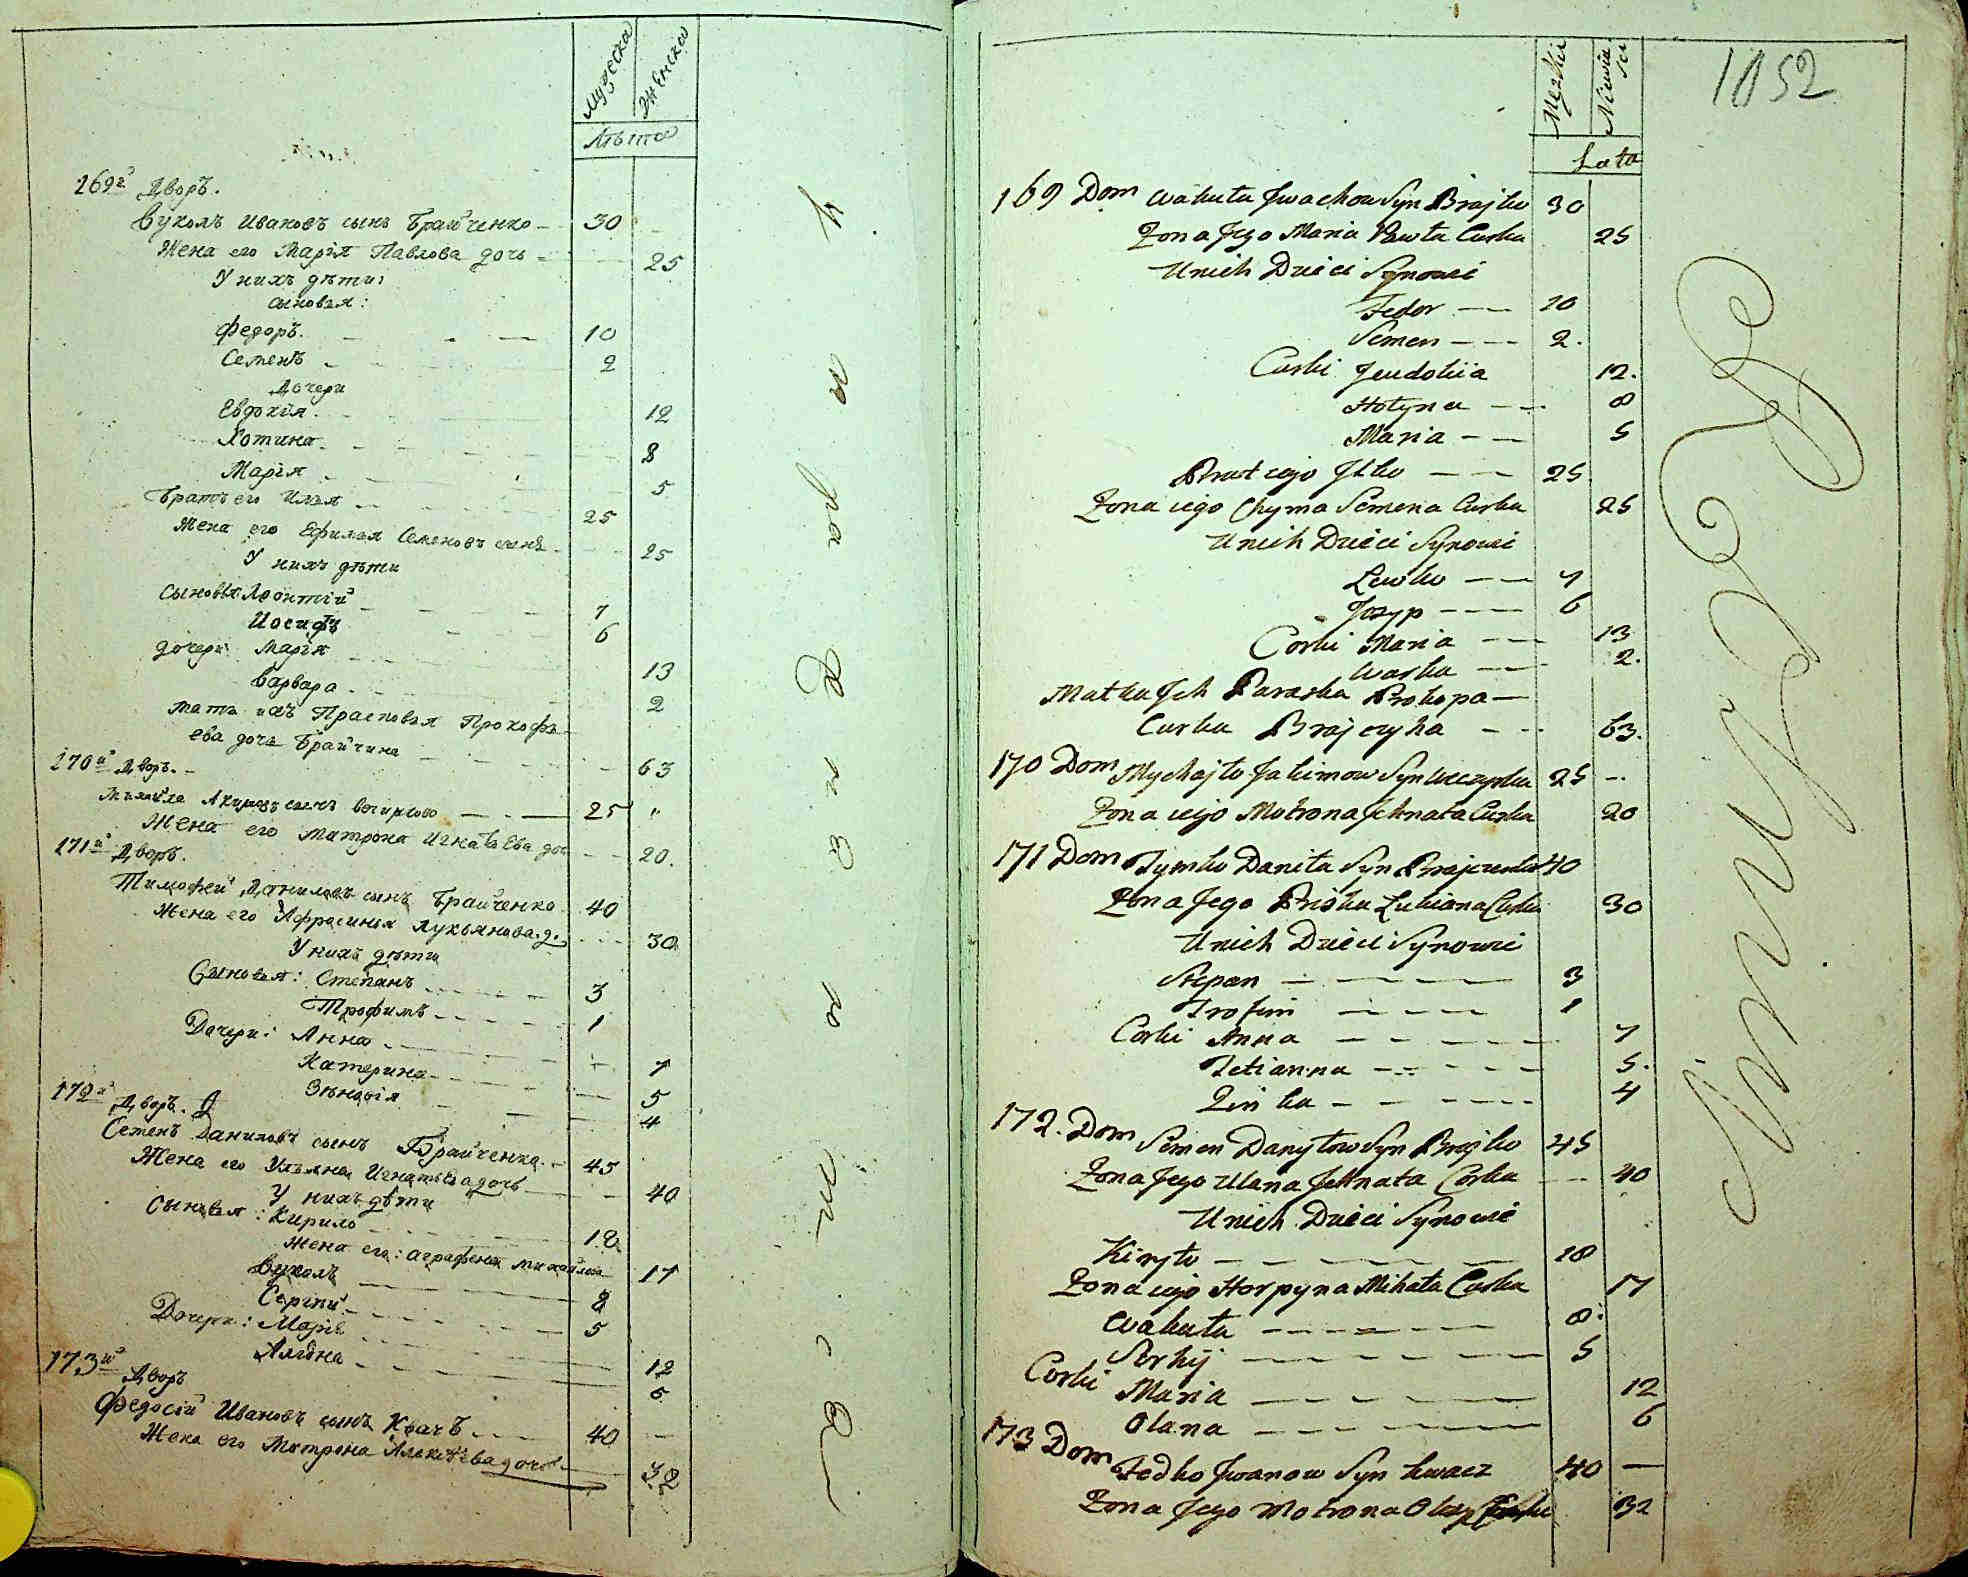 Мужеска
Женска
Лѣта
169й Дворъ.
Вуколъ Ивановъ сынъ Брайченко 30
Жена его Марія Павлова дочь 25
У нихъ дѣти:
сыновья:
Федоръ. 10
Семенъ 2
Дочери
Евдокія. 12
Хотина 8
Марія 5
Братъ его Илья 25
Жена его Ефимія Семеновъ 25
У нихъ дѣти
Сыновья Леонтій 7
Иосифъ 6
дочери Марія 13
Варвара 2
мать ихъ Прасковья Прокофь
ева дочь Брайчиха 63
170й Дворъ.
Михайла Акимовъ сынъ 25 "
Жена его Матрона Игнатьева доч 20.
171й Дворъ.
Тимофей Даниловъ сынъ Брайченко 40
Жена его Афросинья Лукьянова д. 30
У нихъ дѣти
Сыновья: Степанъ 3
Трофимъ 1
Дочери: Анна 7
Катерина 5
Зѣновія 4
172й Дворъ.
Семенъ Даниловъ сынъ Брайченко. 45
Жена его Ульяна Игнатьева дочь 40
У нихъ дѣти
Сыновья: Кирило 18
Жена его: Аграфена Михайлова 17
Вуколъ 8
Сергій 5
Дочери: Марія 12
Алёна 6
173й Дворъ
Федосій Ивановъ сынъ Квачъ 40
Жена его Матрона Алексѣева дочь 32
1852
Mezkie
Niewia
sci
Lata
169 Dom Wakuła Jwachow Syn Brajko 30
Żona Jego Maria Pawła Curka 25
Unich Dzieci Synowie
Fedor 10
Semen 2.
Curki Jeudokiia 12.
Hotyna 8
Maria 5
Brat iego Jlko 25
Żona iego Chyma Semena Curka 25
Unich Dzieci Synowie
Lewko 7
Jozyp 6
Corki Maria 13
Warka 2.
Matka Jch Paraska Prokopa
Curka Brajczyha 63.
170 Dom Mychajło Jakimow Syn 25
Żona iejo Motrona Jehnata Curka 20
171 Dom Tymko Daniła Syn Brajczenko 40
Żona Jego Priśka Lukiana Curka 30
Unich Dzieci Synowie
Stepan 3
Trofim 1
Corki Anna 7
Tetianna 5.
Zinka 4
172. Dom Semen Danyłow Syn Brajko 45
Żona Jego Ulana Jehnata Corka 40
Unich Dzieci Synowie
Kiryło 18
Żona iejo Horpyna Mihała Curka 17
Wakuła 8
Serhij 5
Corki Maria 12
Olana 6
173 Dom
Fedko Jwanow Syn Kwacz 40
Żona Jego Motrona 32